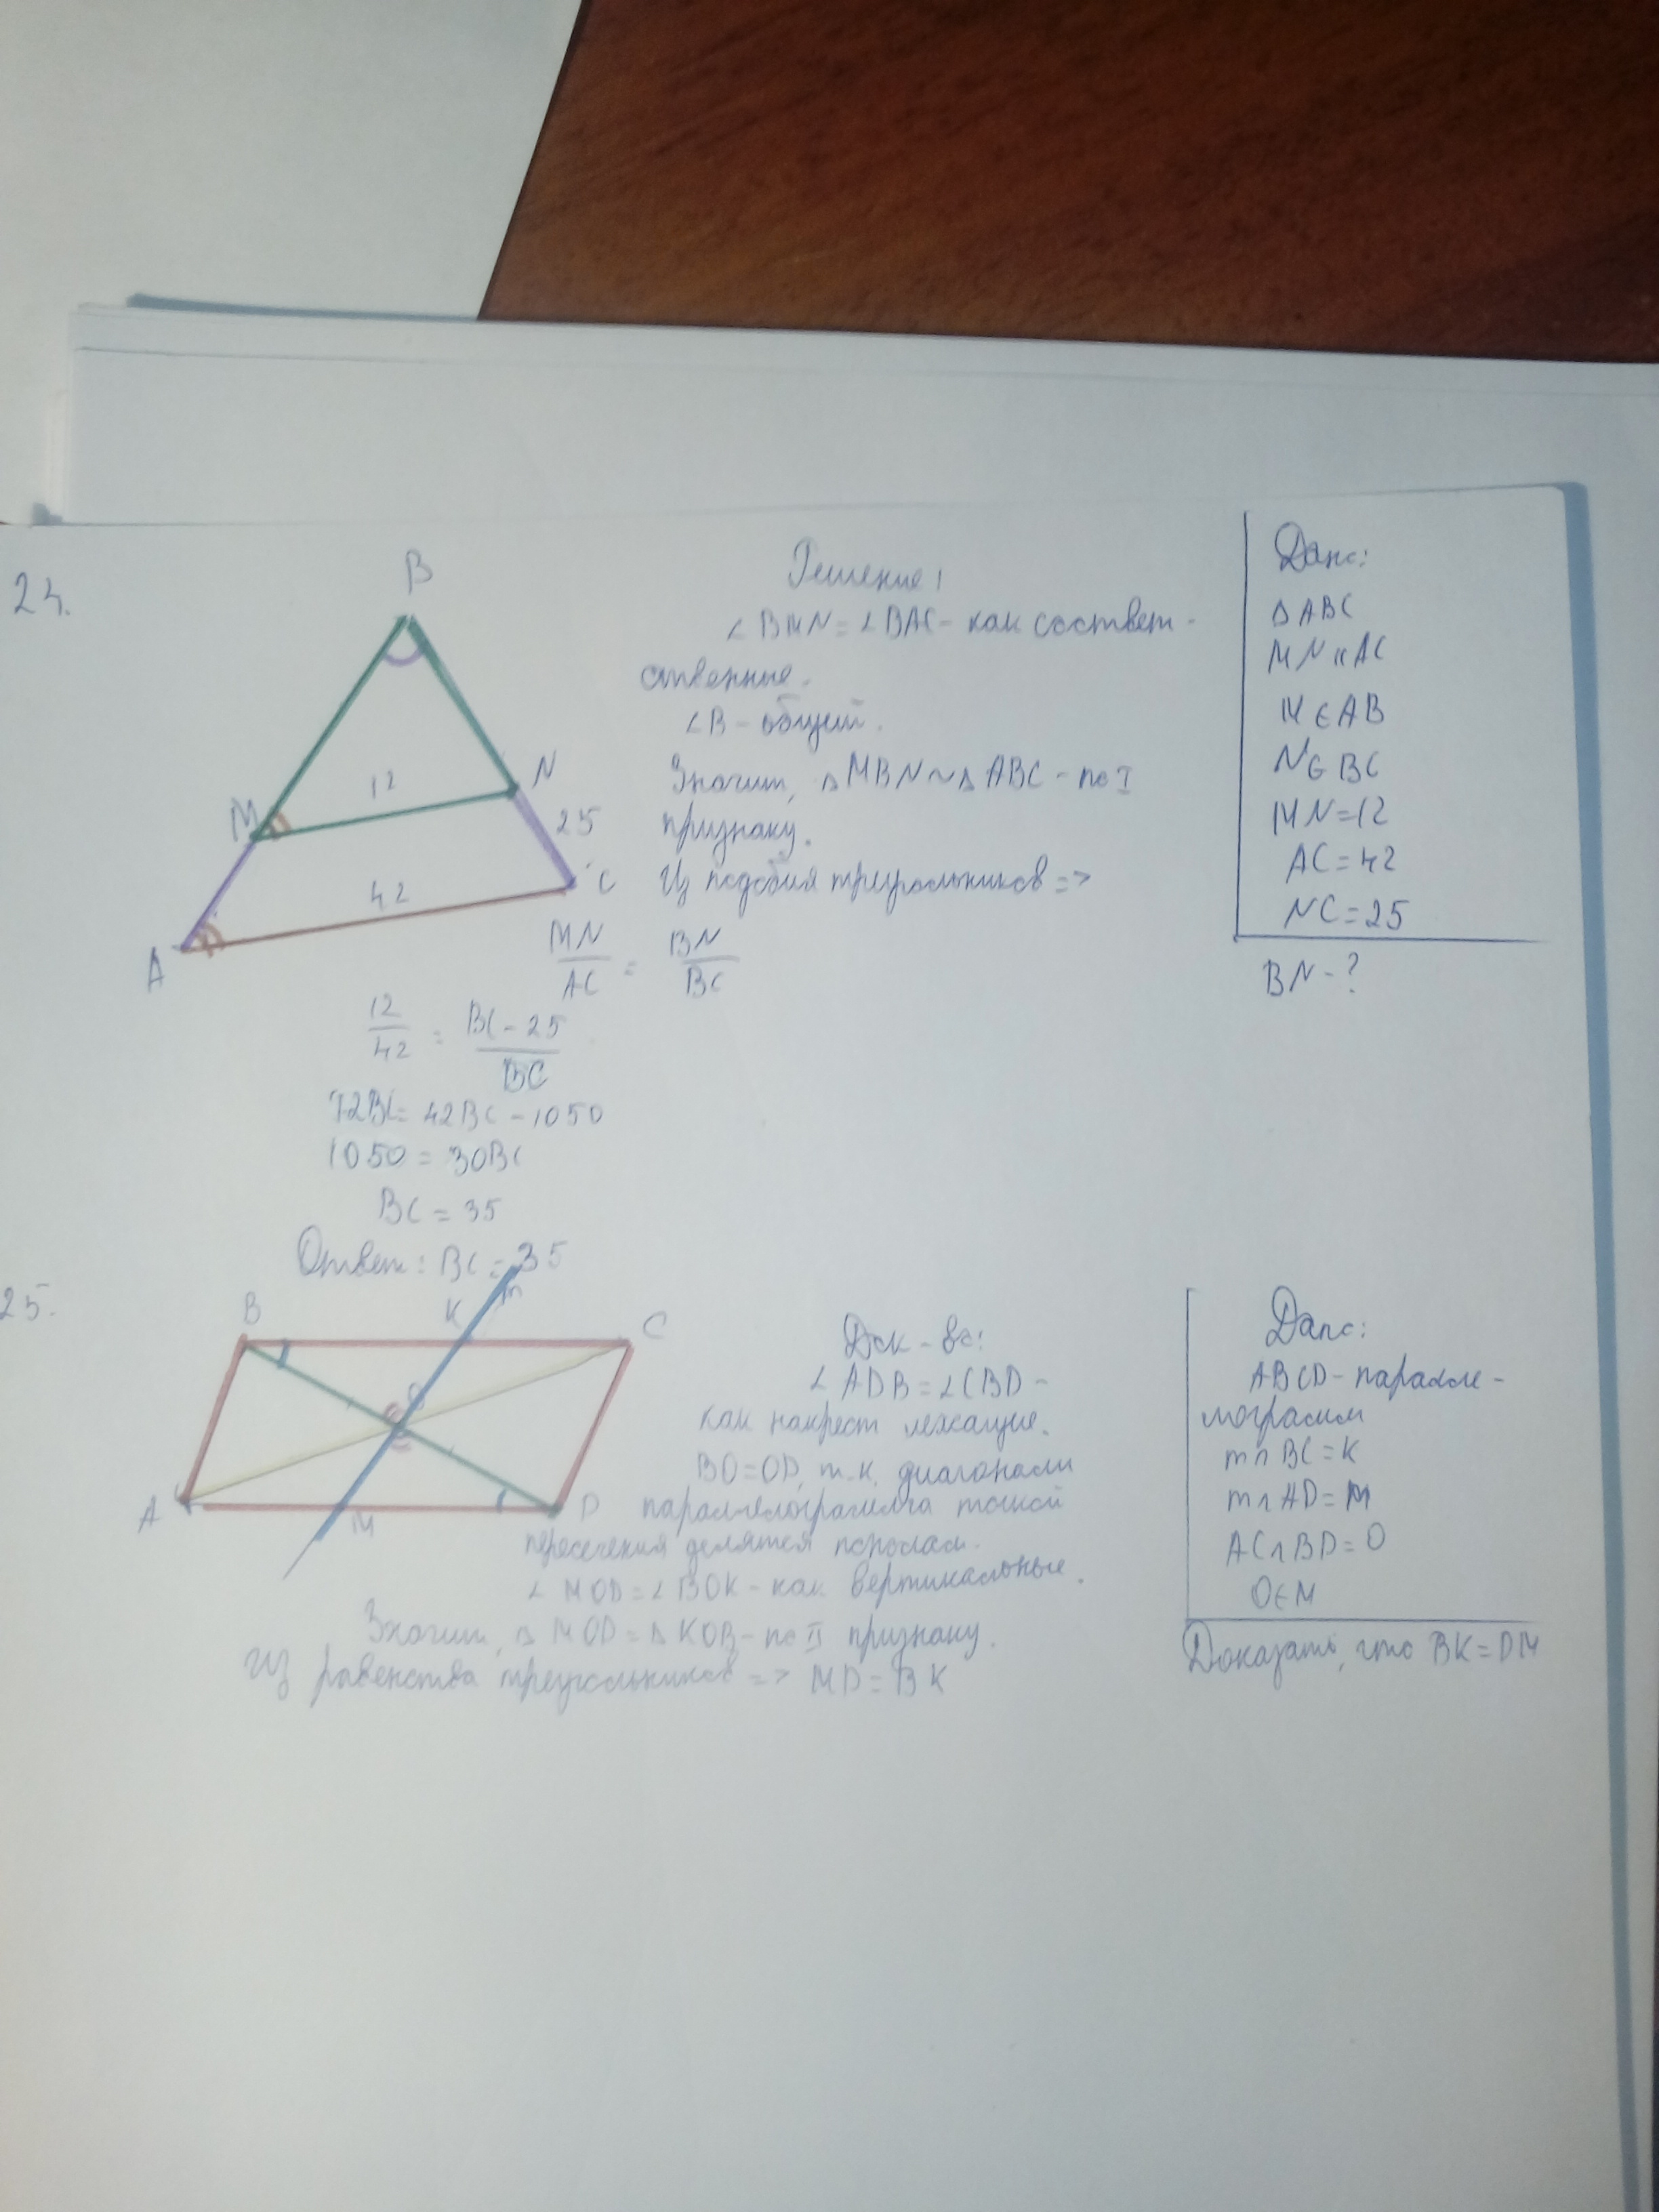 24.
B
M
N
A
C
12
25
42
Решение!
∠BMN = ∠BAC - как соответ-
ственные.
∠B - общий.
Значит, △MBN ~ △ABC - по I
признаку.
Из подобия треугольников =>
MN/AC = BN/BC
12/42 = BC - 25/BC
12BC = 42BC - 1050
1050 = 30BC
BC = 35
Ответ: BC = 35
Дано:
△ABC
MN || AC
M ∈ AB
N ∈ BC
MN = 12
AC = 42
NC = 25
BN - ?
25.
B
K
m
C
O
A
M
D
Док-во:
∠ADB = ∠CBD -
как накрест лежащие.
BO = OD, т.к. диагонали
параллелограмма точкой
пересечения делятся пополам.
∠MOD = ∠BOK - как вертикальные.
Значит, △MOD = △KOB - по II признаку.
Из равенства треугольников => MD = BK
Дано:
ABCD - паралле-
лограмм
m ∩ BC = K
m ∩ AD = M
AC ∩ BD = O
O ∈ M
Доказать, что BK = DM